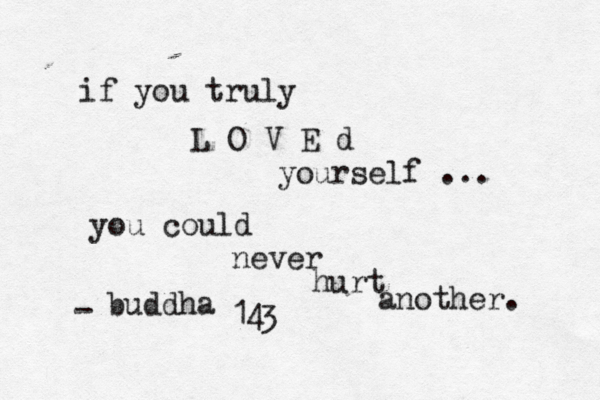 if you truly
L O V E d
yourself ...
you could
never
hurt
another.
- buddha 143